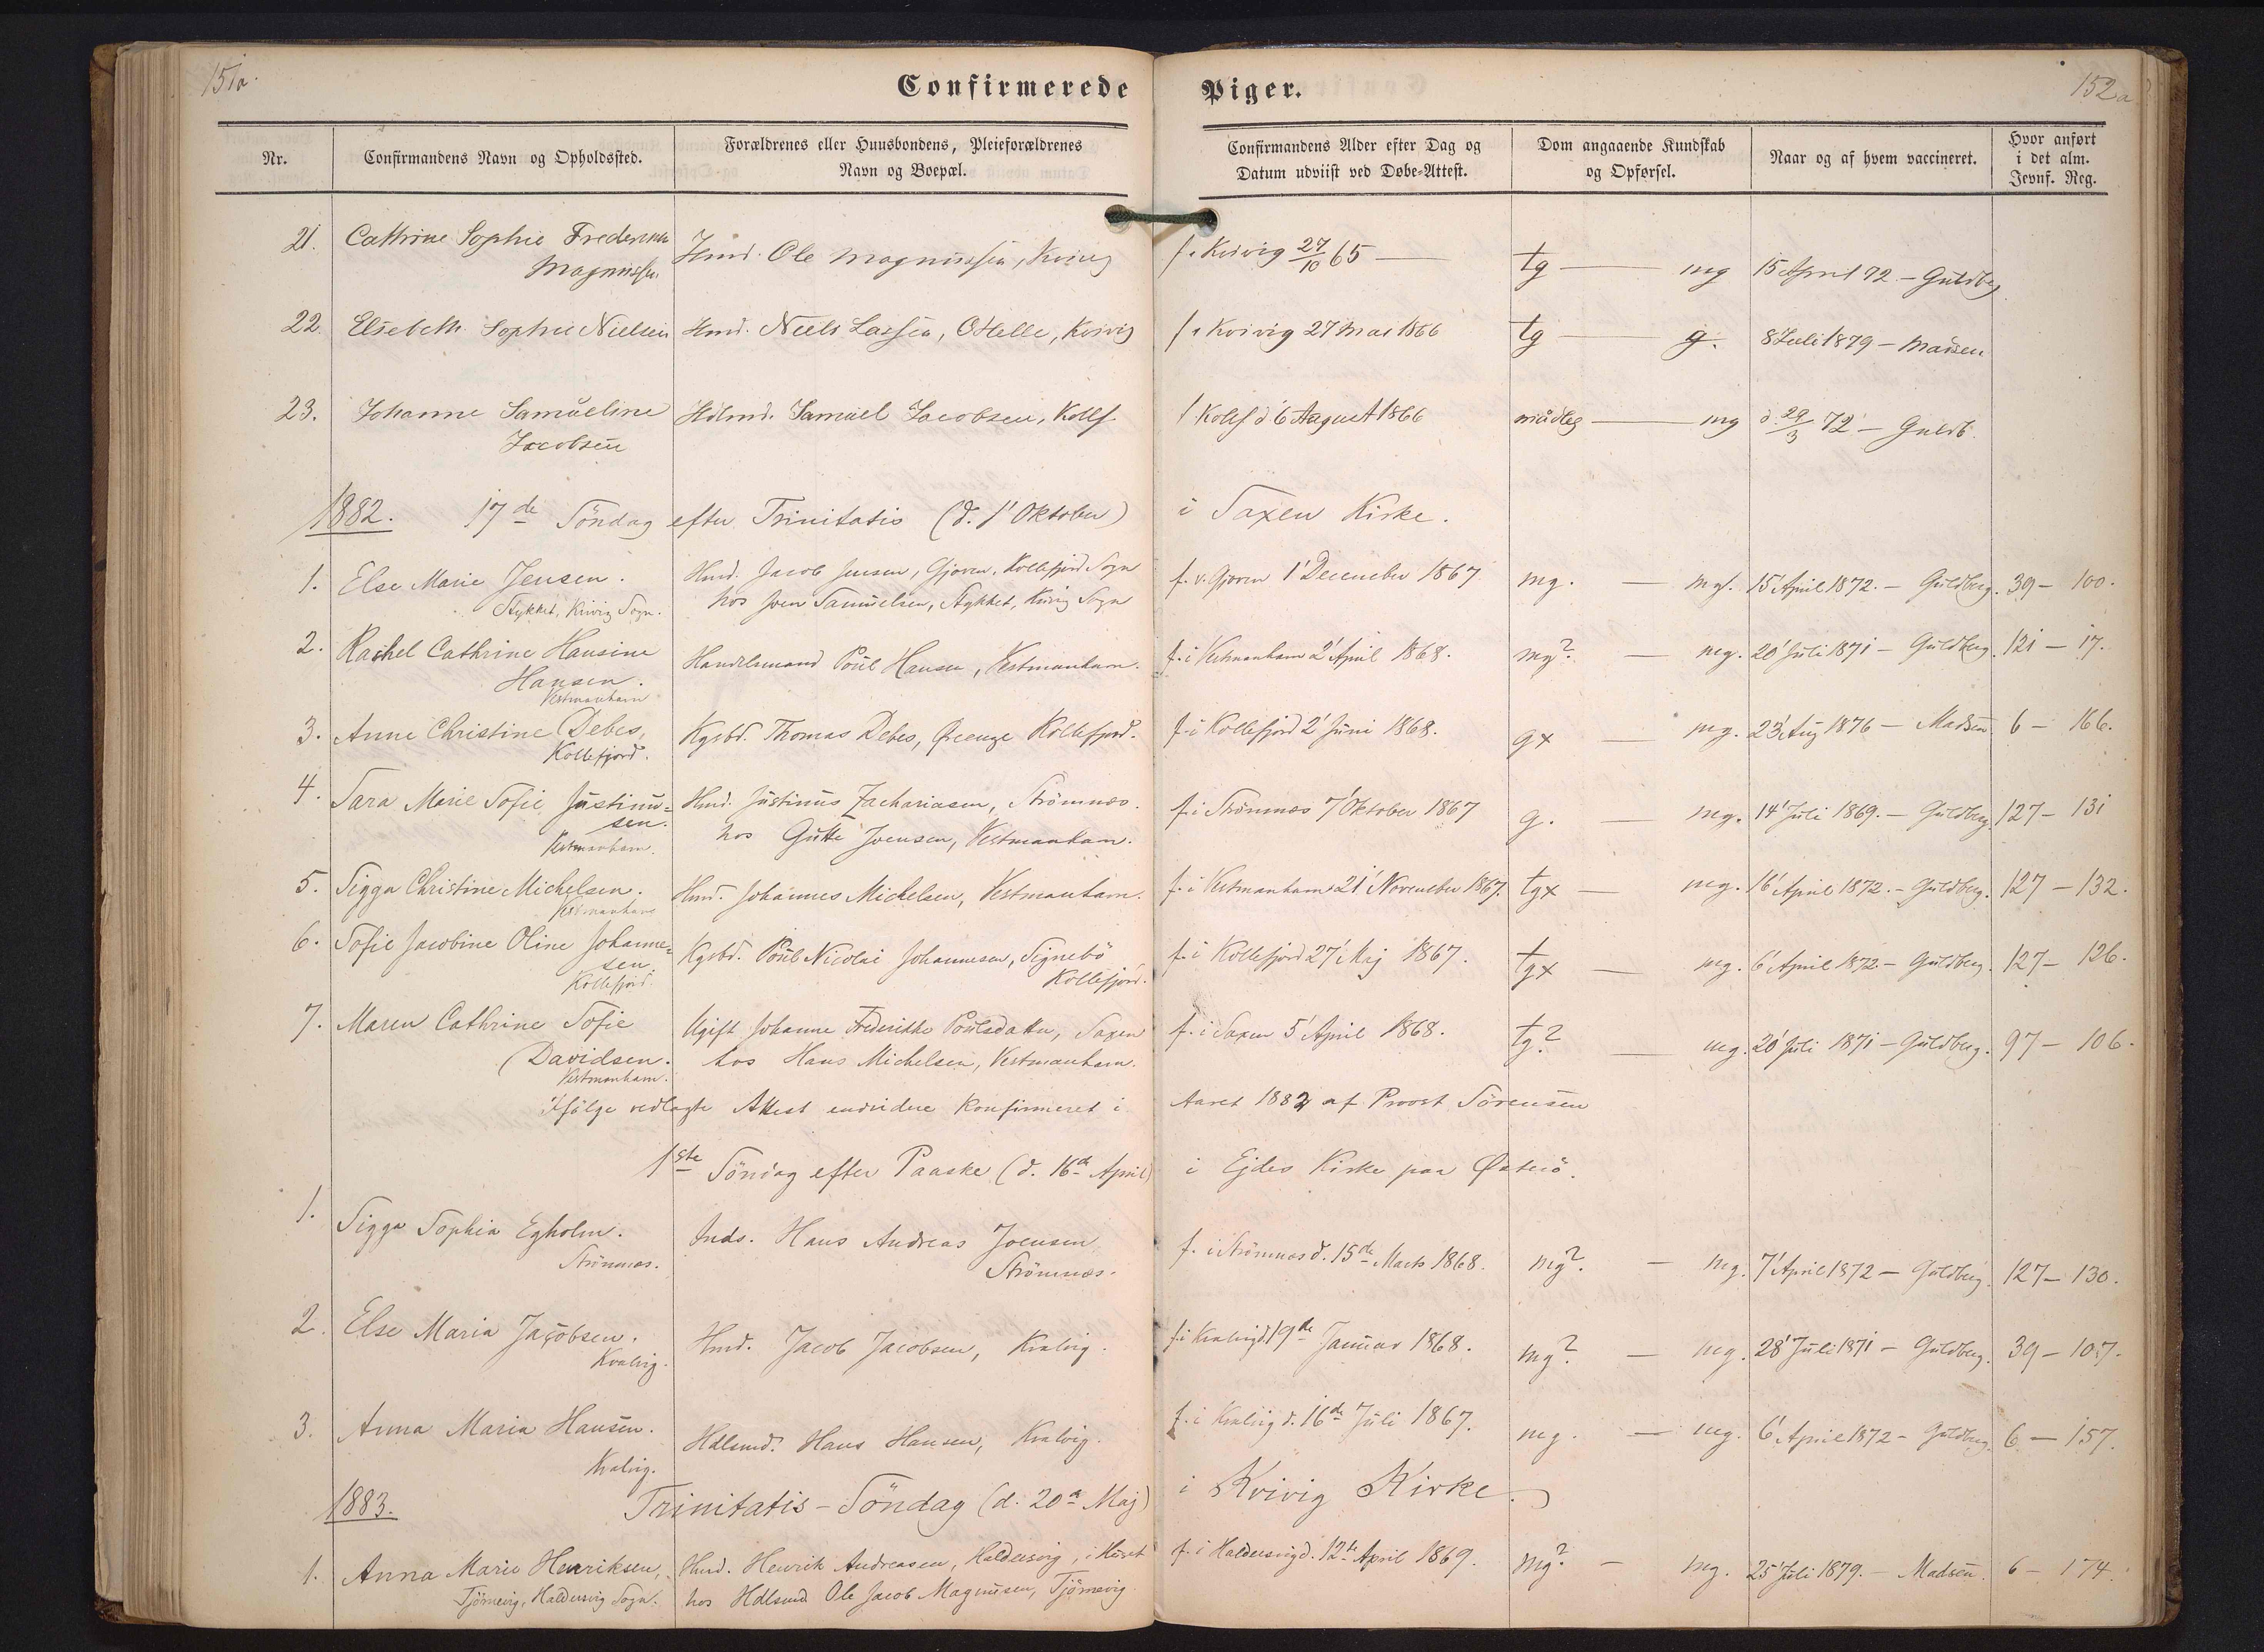 151a.
Confirmerede Piger.
152a
Nr.
Confirmandens Navn og Opholdssted.
Forældrenes eller Huusbondens, Pleieforældrenes
Navn og Boepæl.
Confirmandens Alder efter Dag og
Datum udviist ved Døbe-Attest.
Dom angaaende Kundskab
og Opførsel.
Naar og af hvem vaccineret.
Hvor anført
i det alm.
Jevnf. Reg.
21. Cathrine Sophie Frederikke Hmd. Ole Magnussen, Kvivig f. Kvivig 27/10 65 — tg — mg 15 April 72 - Guldberg
Magnussen
22. Elsebeth Sophie Nielsen Hmd. Niels Lassen, Kvivig f. Kvivig 27 Mai 1866 tg — g. 8 Juli 1879 - Madsen
23. Johanne Samueline Hdlmd. Samuel Jacobsen, Kollf f Kollf d 6 August 1866 mådlg — mg d. 29/3 72 - Guldb.
Jacobsen
1882. 17de Söndag efter Trinitatis (d. 1' Oktober) i Saxen Kirke.
1. Else Marie Jensen. Hmd. Jacob Jensen, Gjoven, Kollefjord Sogn f. v. Gjoven 1' December 1867 mg. — mg. 15' April 1872. - Guldberg. 39 - 100.
Stykket, Kvivig Sogn. hos Joen Samuelsen, Stykket, Kvivig Sogn
2. Rachel Cathrine Hansine Handelsmand Poul Hansen, Vestmanham. f. i Vestmanham 2' April 1868. mg? — mg. 20' Juli 1871 - Guldberg. 121 - 17.
Hansen.
Vestmanham
3. Anne Christine Debes, Kgsbd. Thomas Debes, Kollefjord. f. i Kollefjord 2' Juni 1868. gx — mg. 23' Aug 1876 - Madsen 6 - 166.
Kollefjord.
4. Sara Marie Sofie Justinu= Hmd. Justinus Zachariasen, Strömnæs. f. i Strömnæs 7' Oktober 1867 g. — mg. 14' Juli 1869. - Guldberg. 127 - 131
sen. hos Gutte Joensen, Vestmanham.
Vestmanham.
5. Sigga Christine Michelsen. Hmd. Johannes Michelsen, Vestmanham. f. i Vestmanham 21' November 1867. tgx — mg. 16' April 1872. - Guldberg. 127 - 132.
Vestmanham
6. Sofie Jacobine Oline Johanne= Kgsbd. Poul Nicolai Johannesen, Signebö f. i Kollefjord 27' Maj 1867. tgx — mg. 6' April 1872. - Guldberg. 127 - 126.
sen Kollefjord.
Kollefjord.
7. Maren Cathrine Sofie Ugift Johanne Frederikke Poulsdatter, Saxen f. i Saxen 5' April 1868. tg? — mg. 20' Juli 1871 - Guldberg. 97 - 106.
Davidsen. hos Hans Michelsen, Vestmanham.
Vestmanham.
Ifölge vedlagte Attest endvidere konfirmeret i Aaret 1882 af Provst Sörensen
1ste Söndag efter Paaske (d. 16de April) i Ejdes Kirke paa Österö.
1. Sigga Sophia Egholm. Inds. Hans Andreas Joensen f. i Strömnæs d. 15de Marts 1868. mg? — mg. 7' April 1872 - Guldberg. 127 - 130.
Strömnæs. Strömnæs.
2. Else Maria Jacobsen. Hmd. Jacob Jacobsen, Kvalvig. f. i Kvalvig d. 19de Januar 1868. mg? — mg. 28' Juli 1871 - Guldberg. 39 - 107.
Kvalvig.
3. Anna Maria Hansen. Hdlsmd. Hans Hansen, Kvalvig. f. i Kvalvig d. 16de Juli 1867. mg. — mg. 6' April 1872 - Guldberg. 6 - 157.
Kvalvig.
1883. Trinitatis - Söndag (d. 20de Maj) i Kvivig Kirke.
1. Anna Marie Henriksen, Hmd. Henrik Andreasen, Haldersvig, i Huset f. i Haldersvig d. 12te April 1869. mg? — mg. 25' Juli 1879. - Madsen. 6 - 174.
Tjörnevig, Haldersvig Sogn. hos Hdlsmd Ole Jacob Magnusen, Tjörnevig